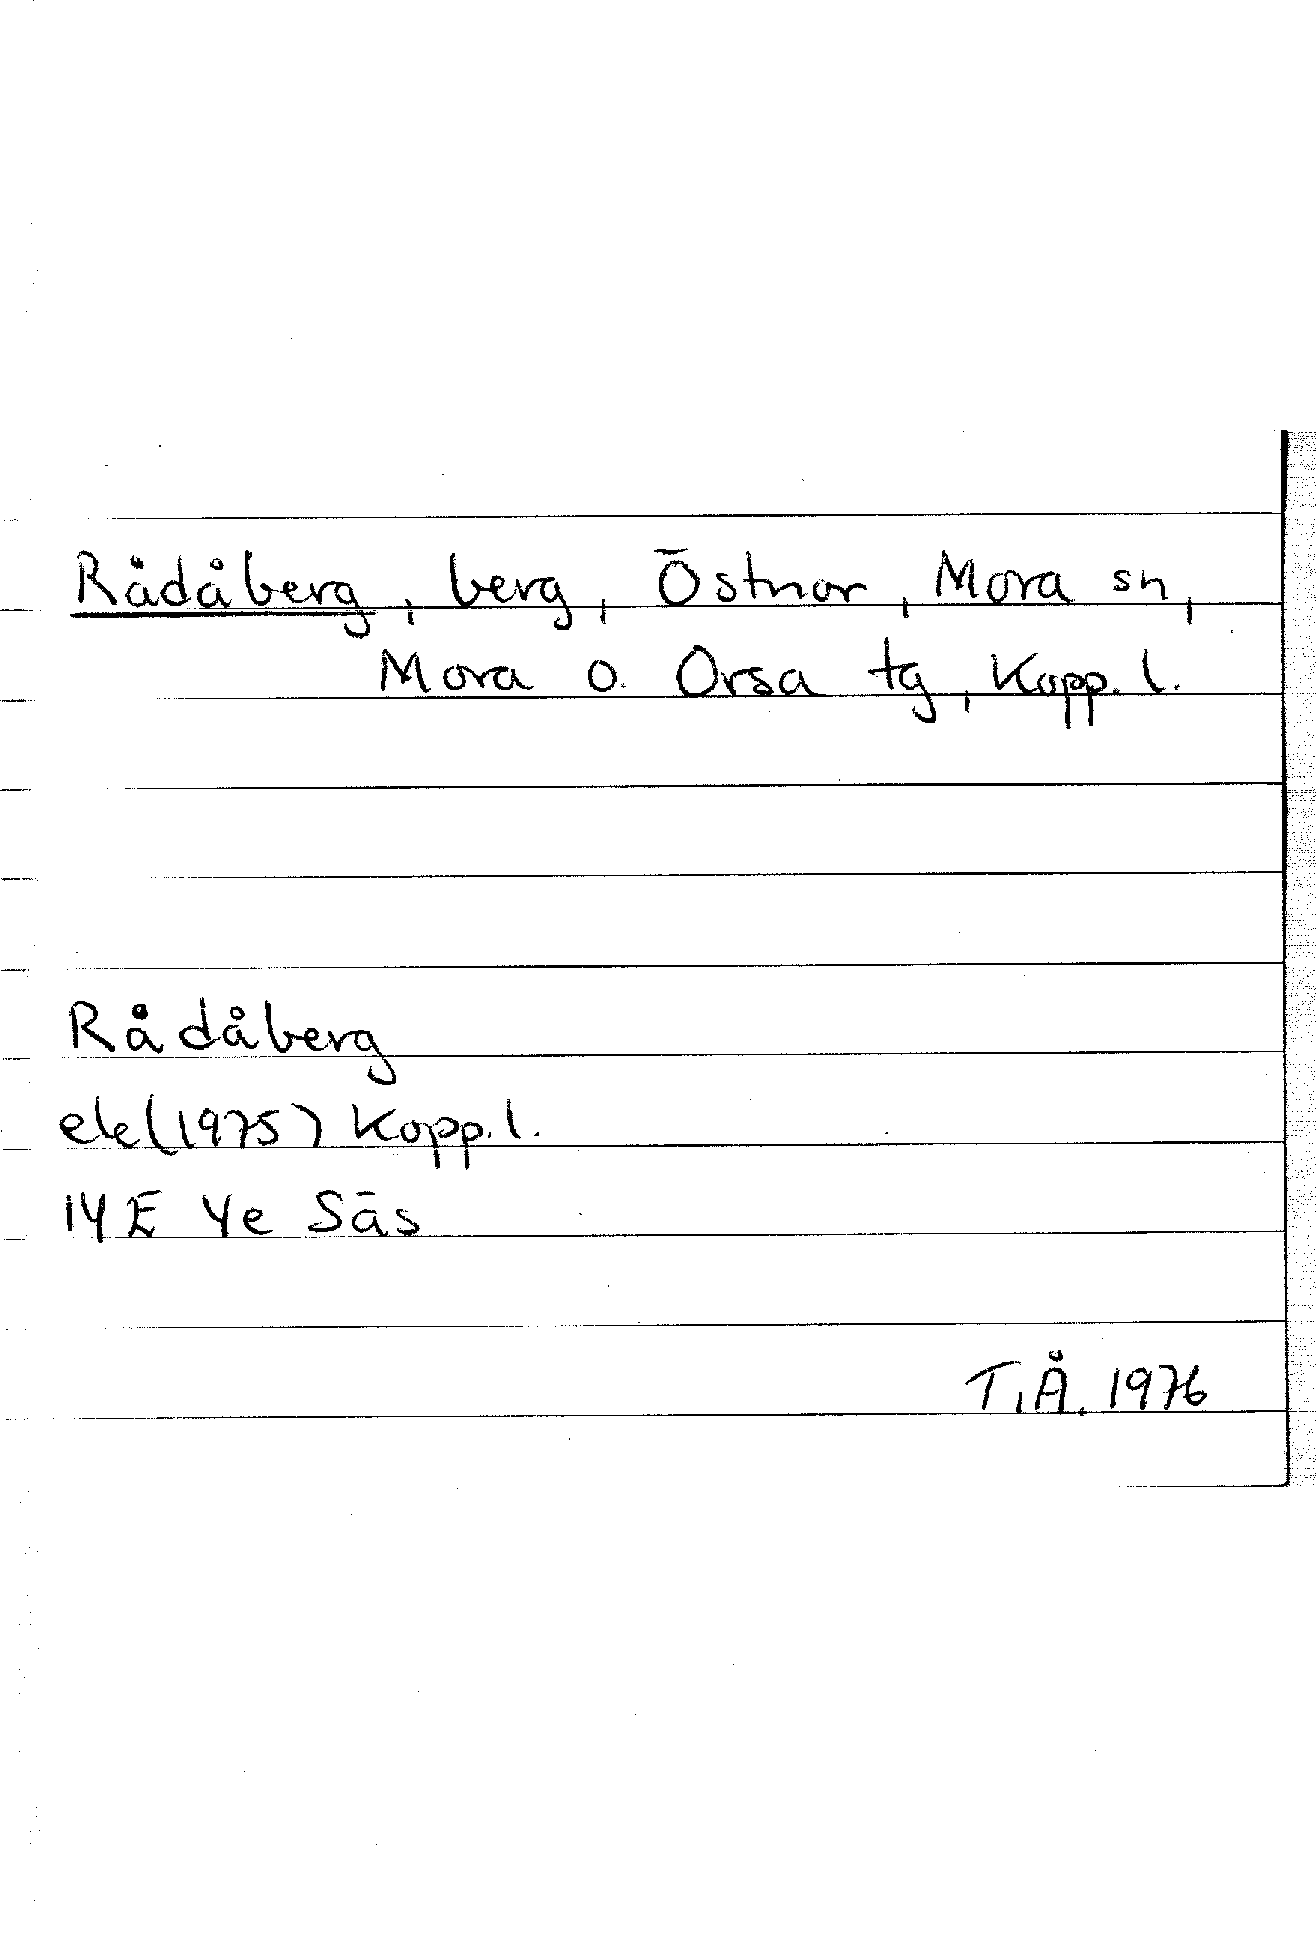 Rådåberg, berg, Östnor, Mora sn,
Mora o. Orsa tg, Kopp. l.
Rådåberg
ek (1975) Kopp. l.
14 E 4e Säs
T.Å. 1976